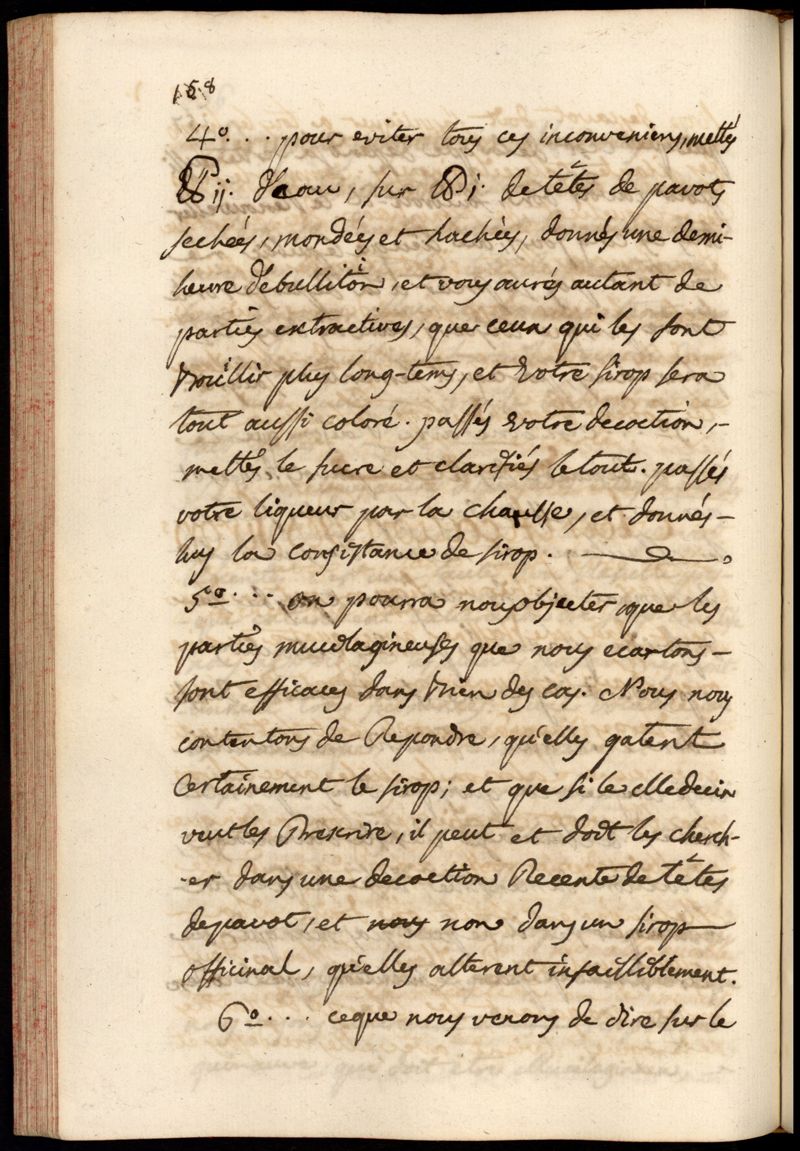 158
4º... pour eviter tous ces inconveniens, mettés
℔ ij. d'eau, sur ℔ j. de têtes de pavots
sechées, mondées et hachées, donnés une demi-
heure d'ebullition, et vous aurés autant de
parties extractives, que ceux qui les font
bouillir plus long-tems, et votre sirop sera
tout aussi coloré. passés votre decoction,-
mettés le sucre et clarifiés le tout. passés
votre liqueur par la chausse, et donnés-
luy la consistance de sirop.
5º... on pourra nous objecter, que les
parties mucilagineuses que nous ecartons-
sont efficaces dans bien des cas. Nous nous
contentons de Repondre, qu'elles gatent
Certainement le sirop; et que si le Medecin
veut les Prescrire, il peut et doit les cherch-
-er dans une decoction Recente de têtes
de pavot, et nous non dans un sirop
officinal, qu'elles alterent infailliblement.
6º... ce que nous venons de dire sur le